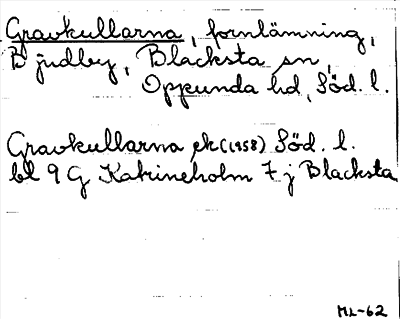 Gravkullarna, fornlämning,
Bjudby, Blacksta sn,
Oppunda hd, Söd. l.
Gravkullarna ek (1958) Söd. l.
bl 9 G Katrineholm 7 j Blacksta
ML-62